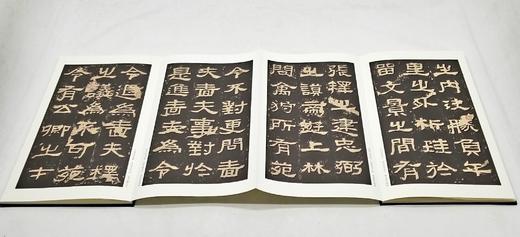 之内決勝負千
里之外析珪於
留文景之間有
張釋之建忠弼
之謨帝遊上林
問禽狩所有苑
令不對更問嗇
夫嗇夫事對於
是進嗇夫為令
令退為嗇夫釋
之議為不可苑
令有公卿之才